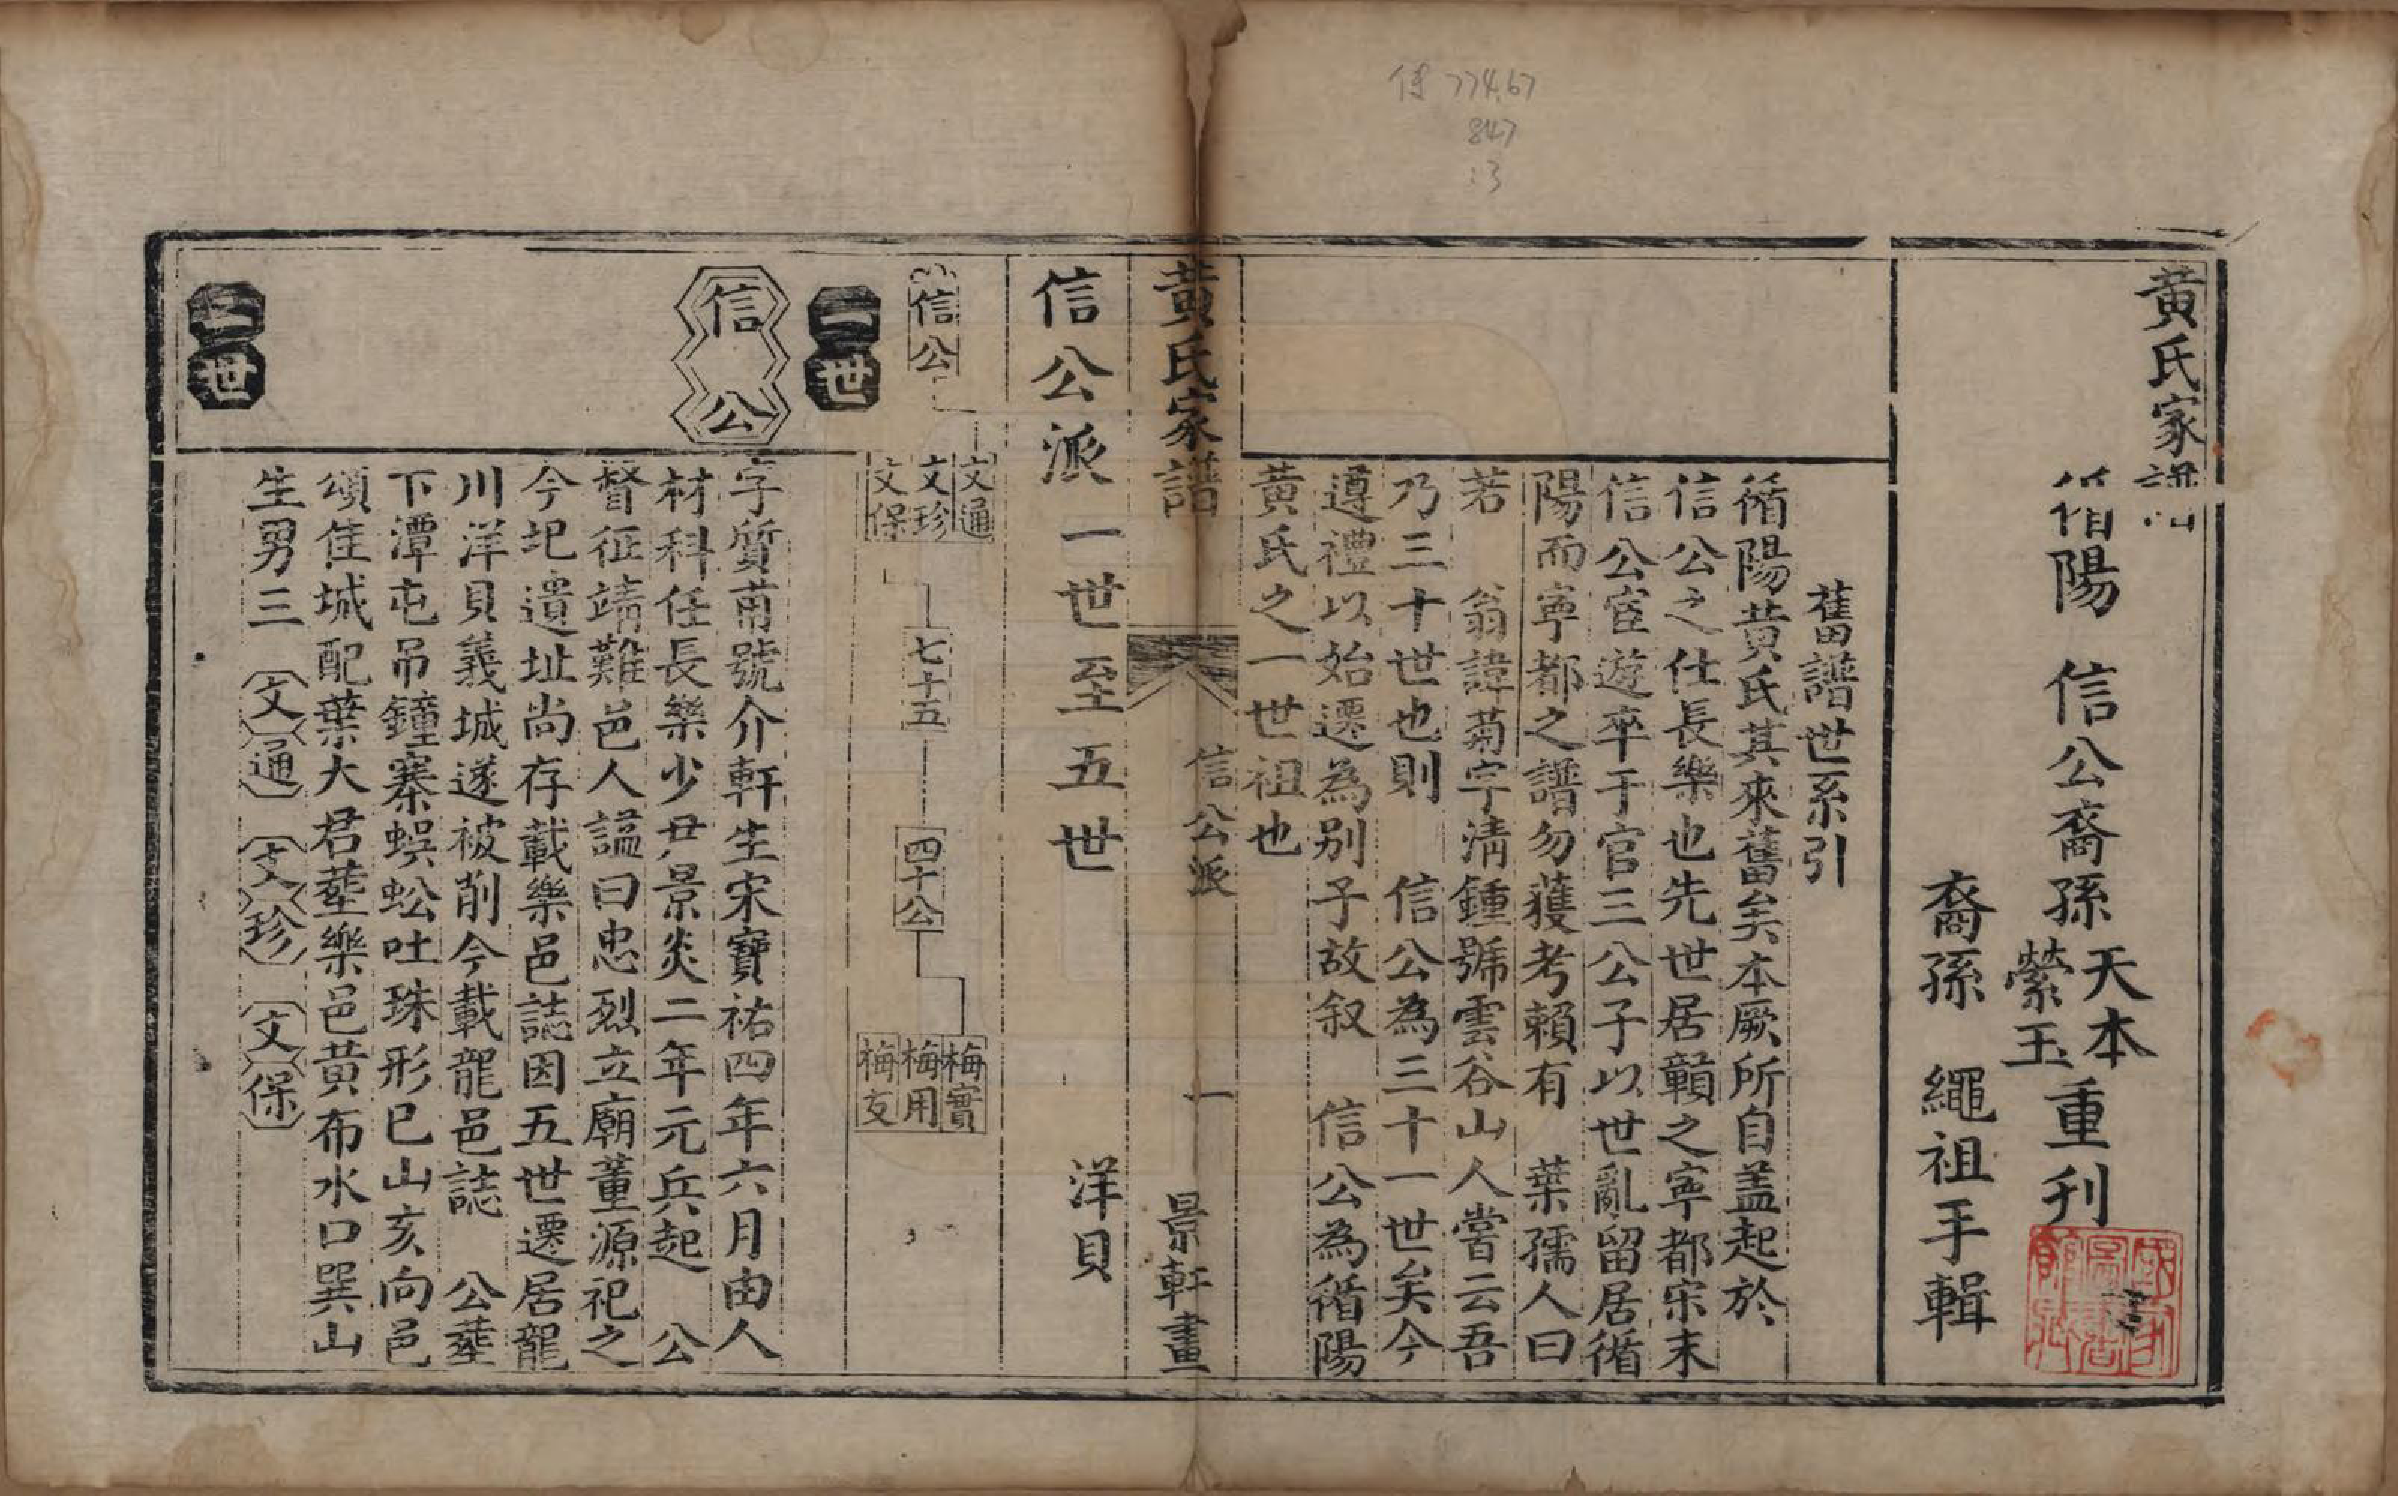 傳 774.67
847
:3
黃氏家譜
循陽 信公裔孫天本縈玉重刊
裔孫 繩祖手輯
舊譜世系引
循陽黃氏其來舊矣本厥所自盖起於
信公之仕長樂也先世居贑之寜都宋末
信公宦遊卒于官三公子以世亂留居循
陽而寜都之譜勿獲考賴有 葉孺人曰
若 翁諱菊字淸鍾號雲谷山人嘗云吾
乃三十世也則 信公為三十一世矣今
遵禮以始遷為别子故叙 信公為循陽
黃氏之一世祖也
黃氏家譜 信公派 一 景軒畫
信公派一世至五世 洋貝
信公
文通
文珍
文保
七十五
四十公
梅實
梅用
梅友
一世
信公
字質甫號介軒生宋寶祐四年六月由人
材科任長樂少尹景炎二年元兵起 公
督征靖難邑人謚曰忠烈立廟董源祀之
今圯遺址尚存載樂邑誌因五世遷居龍
川洋貝義城遂被削今載龍邑誌 公塟
下潭屯吊鐘寨蜈蚣吐珠形巳山亥向邑
頌佳城配葉大君塟樂邑黃布水口巽山
生男三 文通 文珍 文保
二世